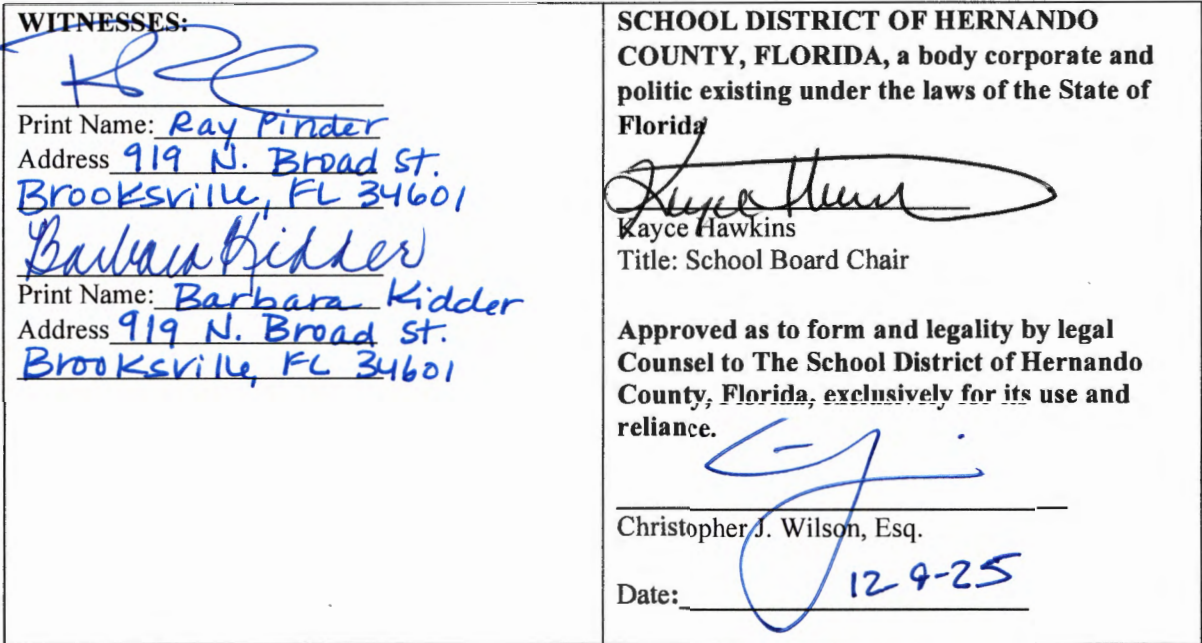 WITNESSES:
Print Name: Ray Pinder
Address 919 N. Broad St.
Brooksville, FL 34601
Barbara Kidder
Print Name: Barbara Kidder
Address 919 N. Broad St.
Brooksville, FL 34601
SCHOOL DISTRICT OF HERNANDO
COUNTY, FLORIDA, a body corporate and
politic existing under the laws of the State of
Florida
Kayce Hawkins
Title: School Board Chair
Approved as to form and legality by legal
Counsel to The School District of Hernando
County, Florida, exclusively for its use and
reliance.
Christopher J. Wilson, Esq.
Date: 12-9-25